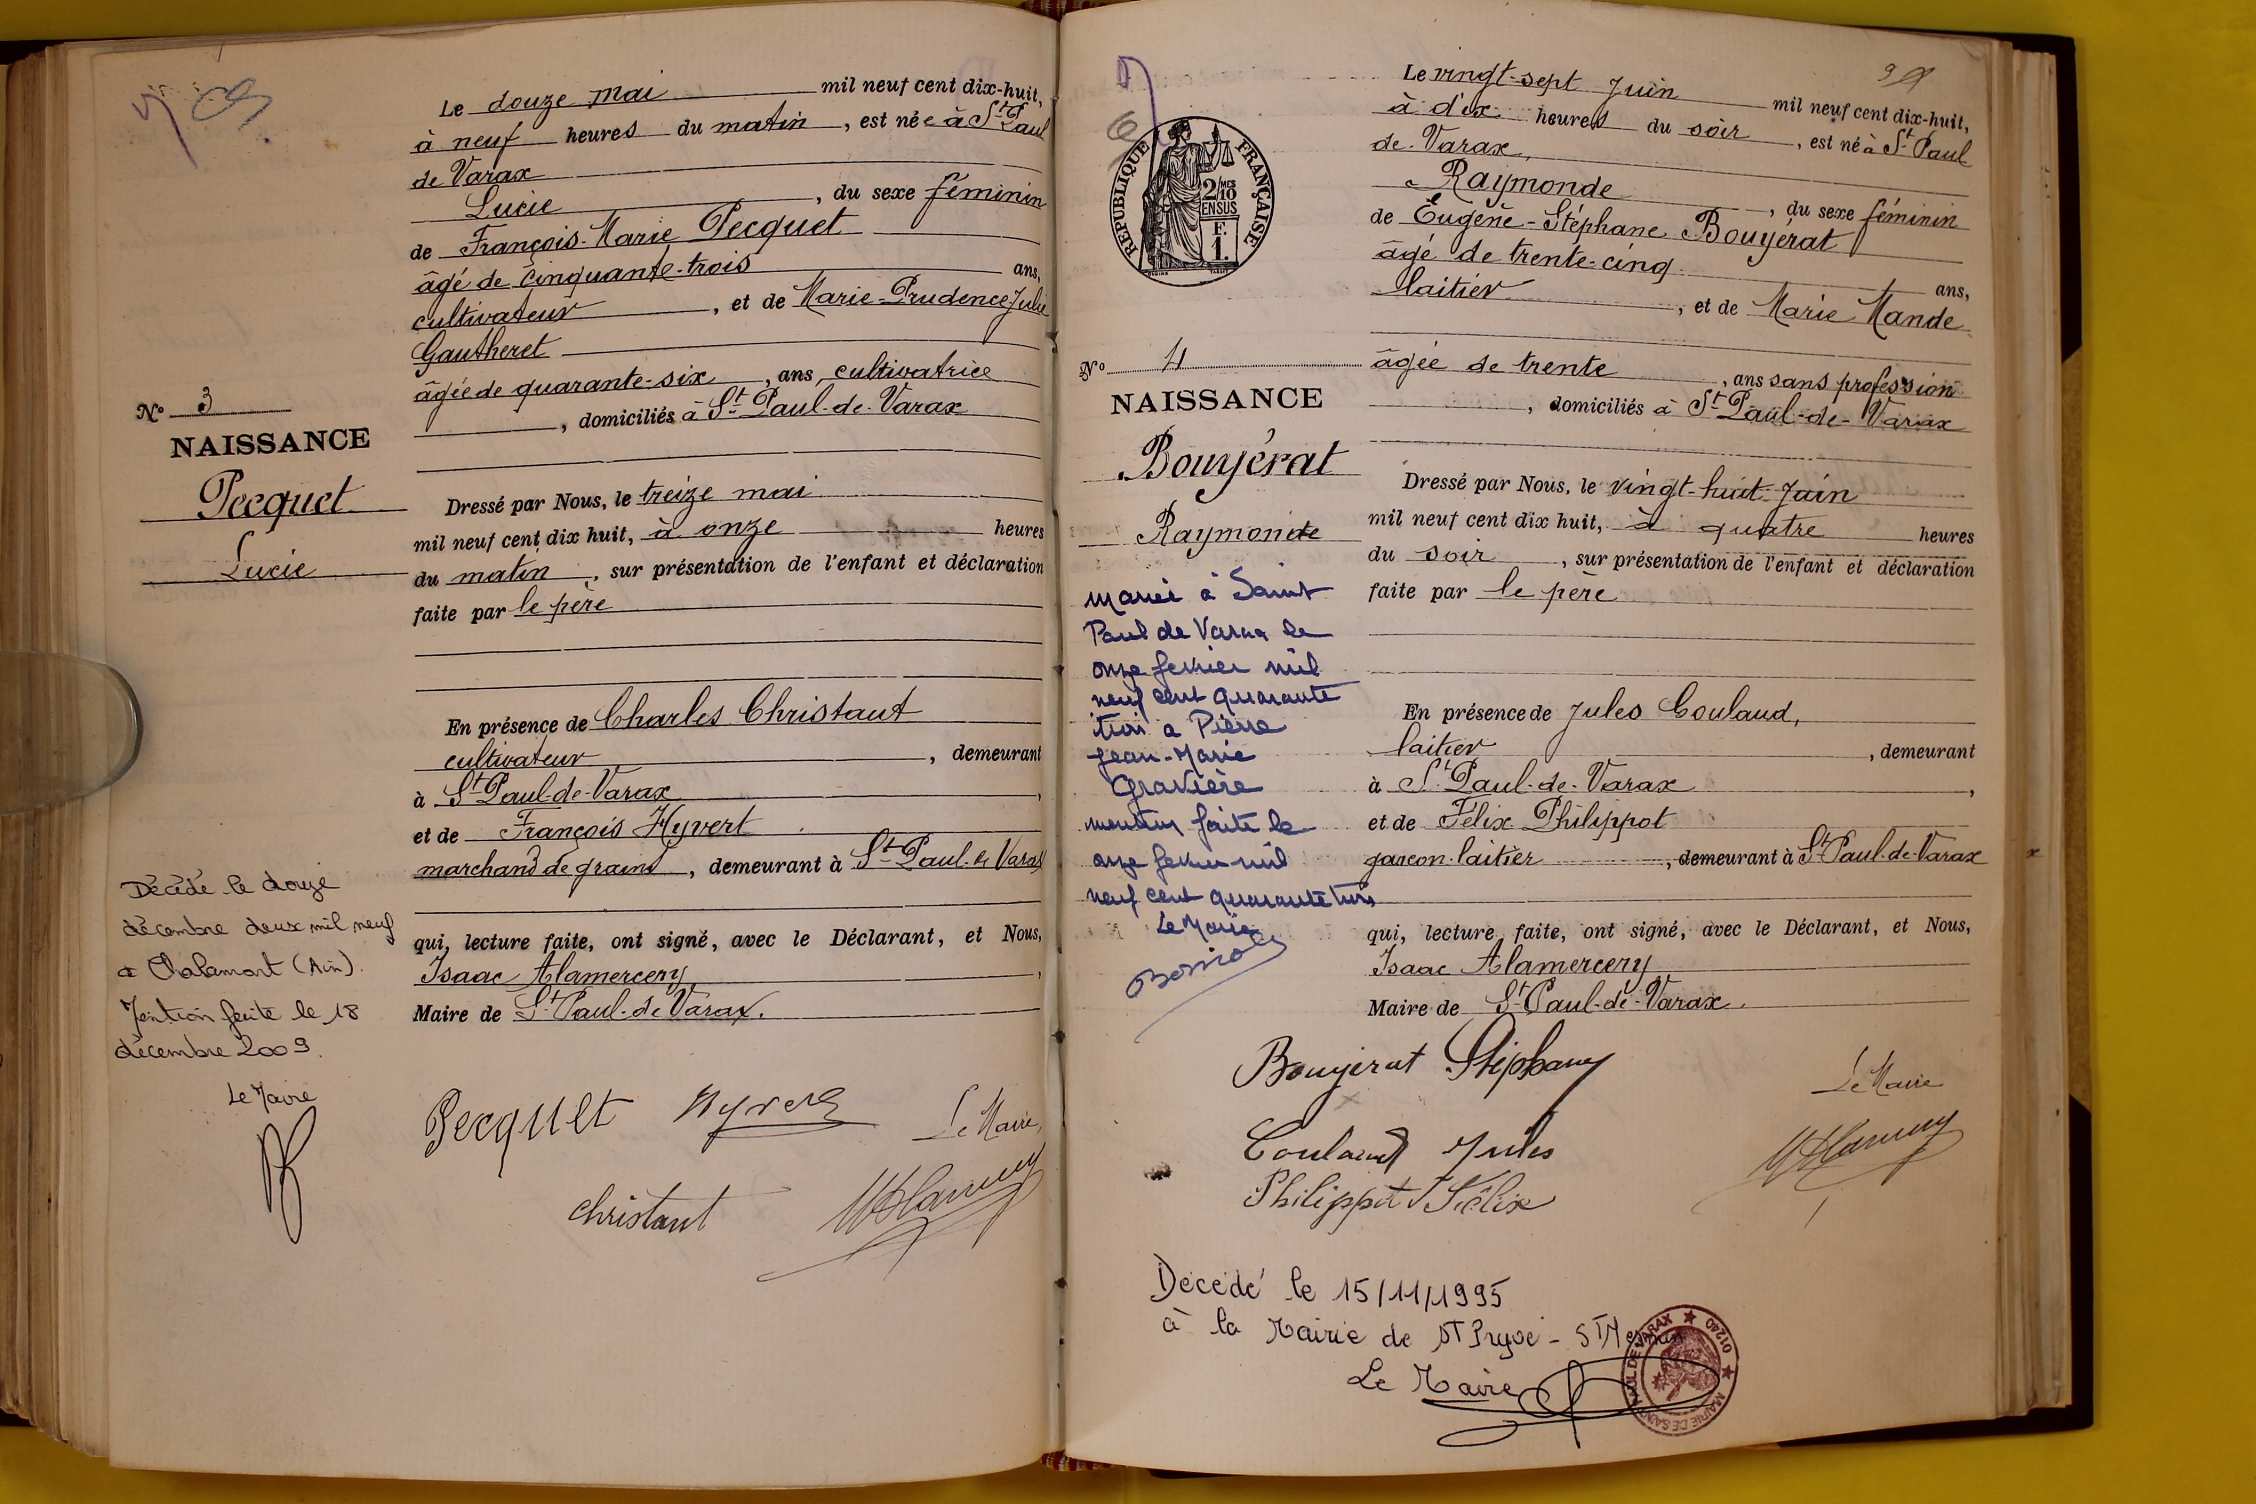 Le douze mai mil neuf cent dix-huit,
à neuf heures du matin, est née à St Paul
de Varax
Lucie, du sexe féminin
de François-Marie Pecquet
âgé de cinquante-trois ans,
cultivateur, et de Marie-Prudence Julie
Gautheret
âgée de quarante-six, ans, cultivatrice
, domiciliés à St Paul-de-Varax
No 3
NAISSANCE
Pecquet
Lucie
Dressé par Nous, le treize mai
mil neuf cent dix huit, à onze heures
du matin, sur présentation de l'enfant et déclaration
faite par le père
En présence de Charles Christaut
cultivateur, demeurant
à St Paul-de-Varax,
et de François Hyvert
marchand de grains, demeurant à St Paul-de Varax
qui, lecture faite, ont signé, avec le Déclarant, et Nous,
Isaac Alamercery,
Maire de St Paul-de Varax.
Décédé le douze
décembre deux mil neuf
à Chalamont (Ain).
Mention faite le 18
décembre 2009.
Le Maire
Pecquet Hyvert Le Maire,
Christaut
Le vingt-sept Juin mil neuf cent dix-huit,
à dix heures du soir, est né à St Paul
de Varax,
Raymonde, du sexe féminin
de Eugène-Stéphane Bouyérat
âgé de trente-cinq ans,
laitier, et de Marie Mande
âgée de trente, ans sans profession
, domiciliés à St Paul-de-Varax
RÉPUBLIQUE FRANÇAISE
2/10 MES
EN SUS
F.
1.
No 4
NAISSANCE
Bouyérat
Raymonde
Dressé par Nous, le vingt-huit Juin
mil neuf cent dix huit, à quatre heures
du soir, sur présentation de l'enfant et déclaration
faite par le père
En présence de Jules Coulaud,
laitier, demeurant
à St Paul-de-Varax,
et de Félix Philippot
garcon-laitier, demeurant à St Paul-de-Varax
qui, lecture faite, ont signé, avec le Déclarant, et Nous,
Isaac Alamercery
Maire de St Paul-de-Varax.
mariée à Saint
Paul de Varax le
onze fevrier mil
neuf cent quarante
trois a Pierre
Jean-Marie
Gravière
mention faite le
onze fevrier mil
neuf cent quarante trois
Le Maire
Bouyerat Stéphane
Le Maire
Coulaud Jules
Philippot Félix
Décédé le 15/11/1995
à la Mairie de ST Pryvé - ST Mesmin
Le Maire
MAIRIE DE SAINT PAUL DE VARAX ★ 01240 ★